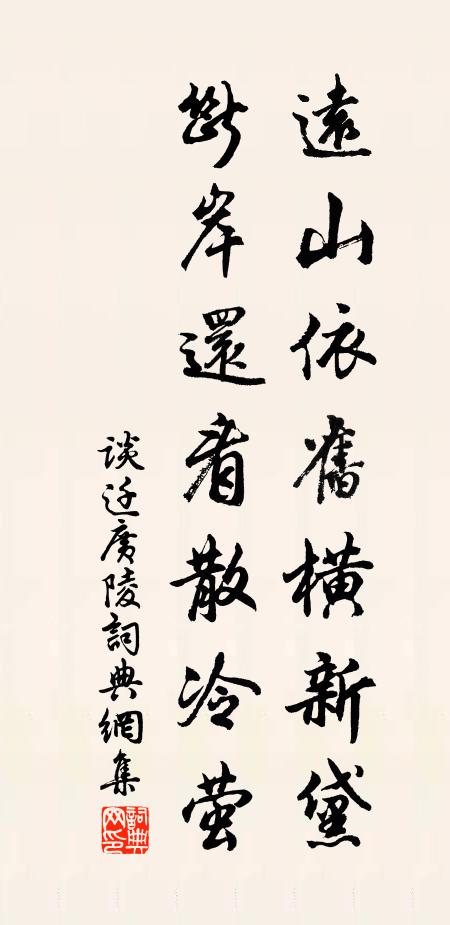 遠山依舊橫新黛
斷岸還看散冷螢
談迁廣陵詞典網集
詞典網印